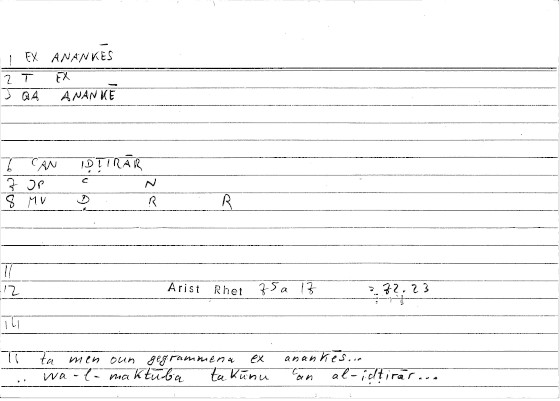 1 EX ANANKĒS
2 T EX
3 QA ANANKĒ
6 ʿAN IḌṬIRĀR
7 JP C N
8 MV Ḍ R R
11
12 Arist Rhet 75a 17 = 72.23
14
15 ta men oun gegrammena ex anankēs...
.. wa-l-maktūba takūnu ʿan al-iḍṭirār...